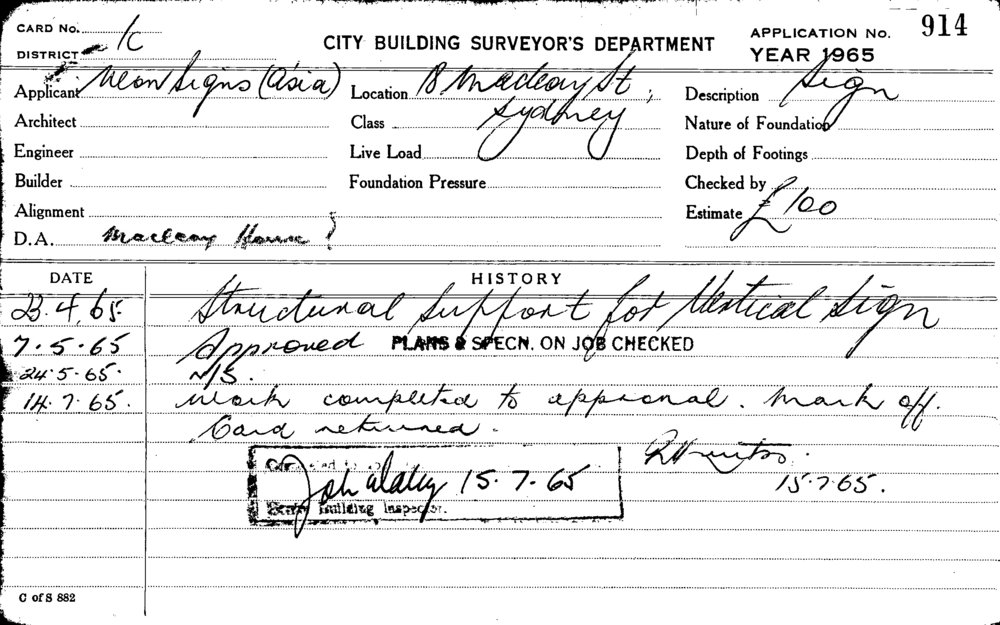 CARD No.
DISTRICT 1C
CITY BUILDING SURVEYOR'S DEPARTMENT
APPLICATION No. 914
YEAR 1965
Applicant Neon Signs (Asia)
Location 18 Macleay St,
Sydney
Description Sign
Architect
Class
Nature of Foundation
Engineer
Live Load
Depth of Footings
Builder
Foundation Pressure
Checked by
Alignment
Estimate £100
D.A. Macleay House ?
DATE HISTORY
23.4.65. Structural Support for Vertical Sign
7.5.65 Approved PLANS & SPECN. ON JOB CHECKED
24.5.65. N/S.
14.7.65. Work completed to approval. Mark off.
Card returned.
15.7.65
Building Inspector.
15.7.65.
C of S 882